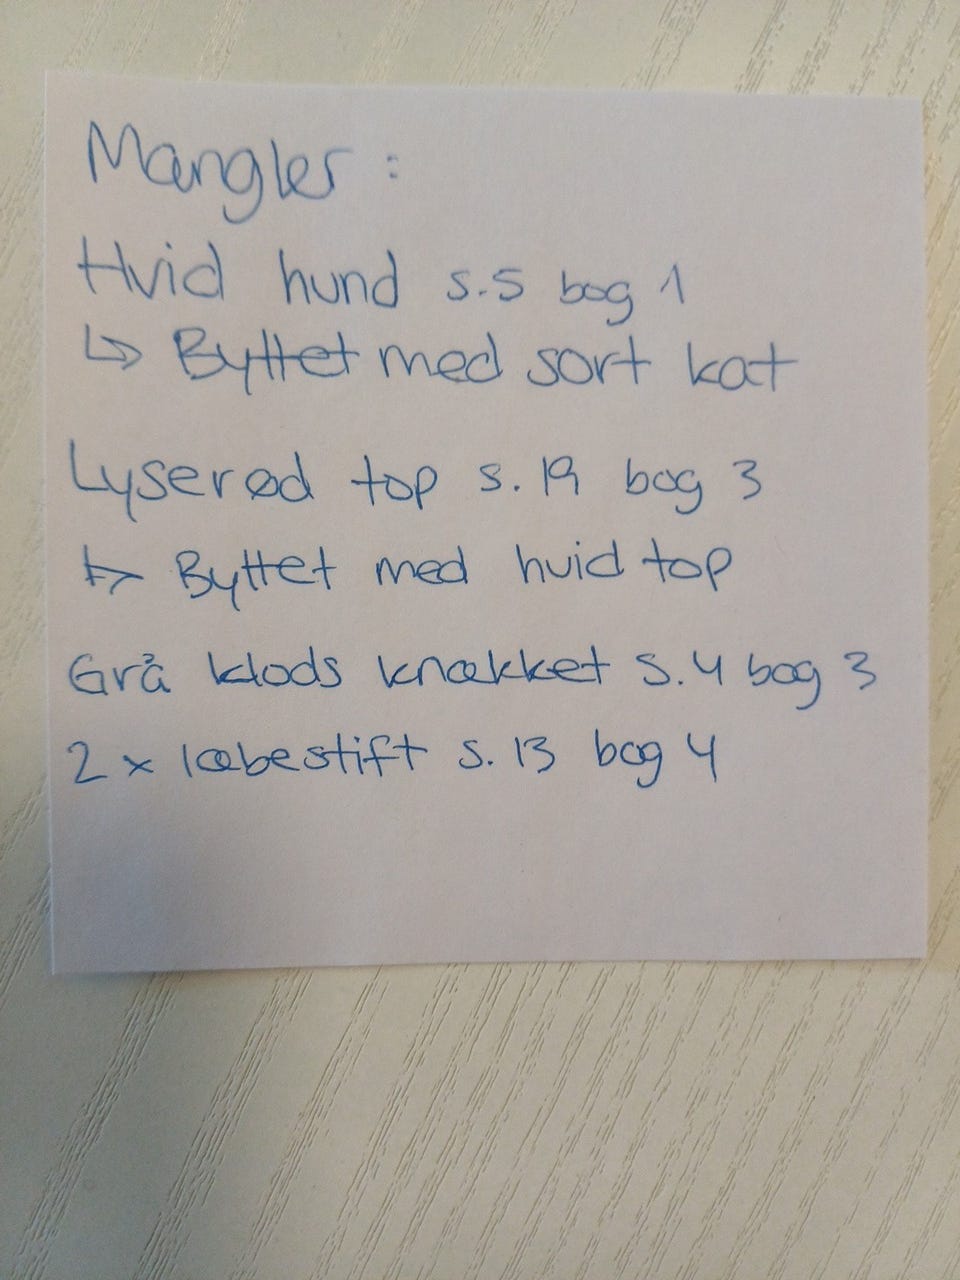 Mangler :
Hvid hund s.5 bog 1
↳ Byttet med sort kat
Lyserød top s. 19 bog 3
↳ Byttet med hvid top
Grå klods knækket s. 4 bog 3
2 x læbestift s. 13 bog 4